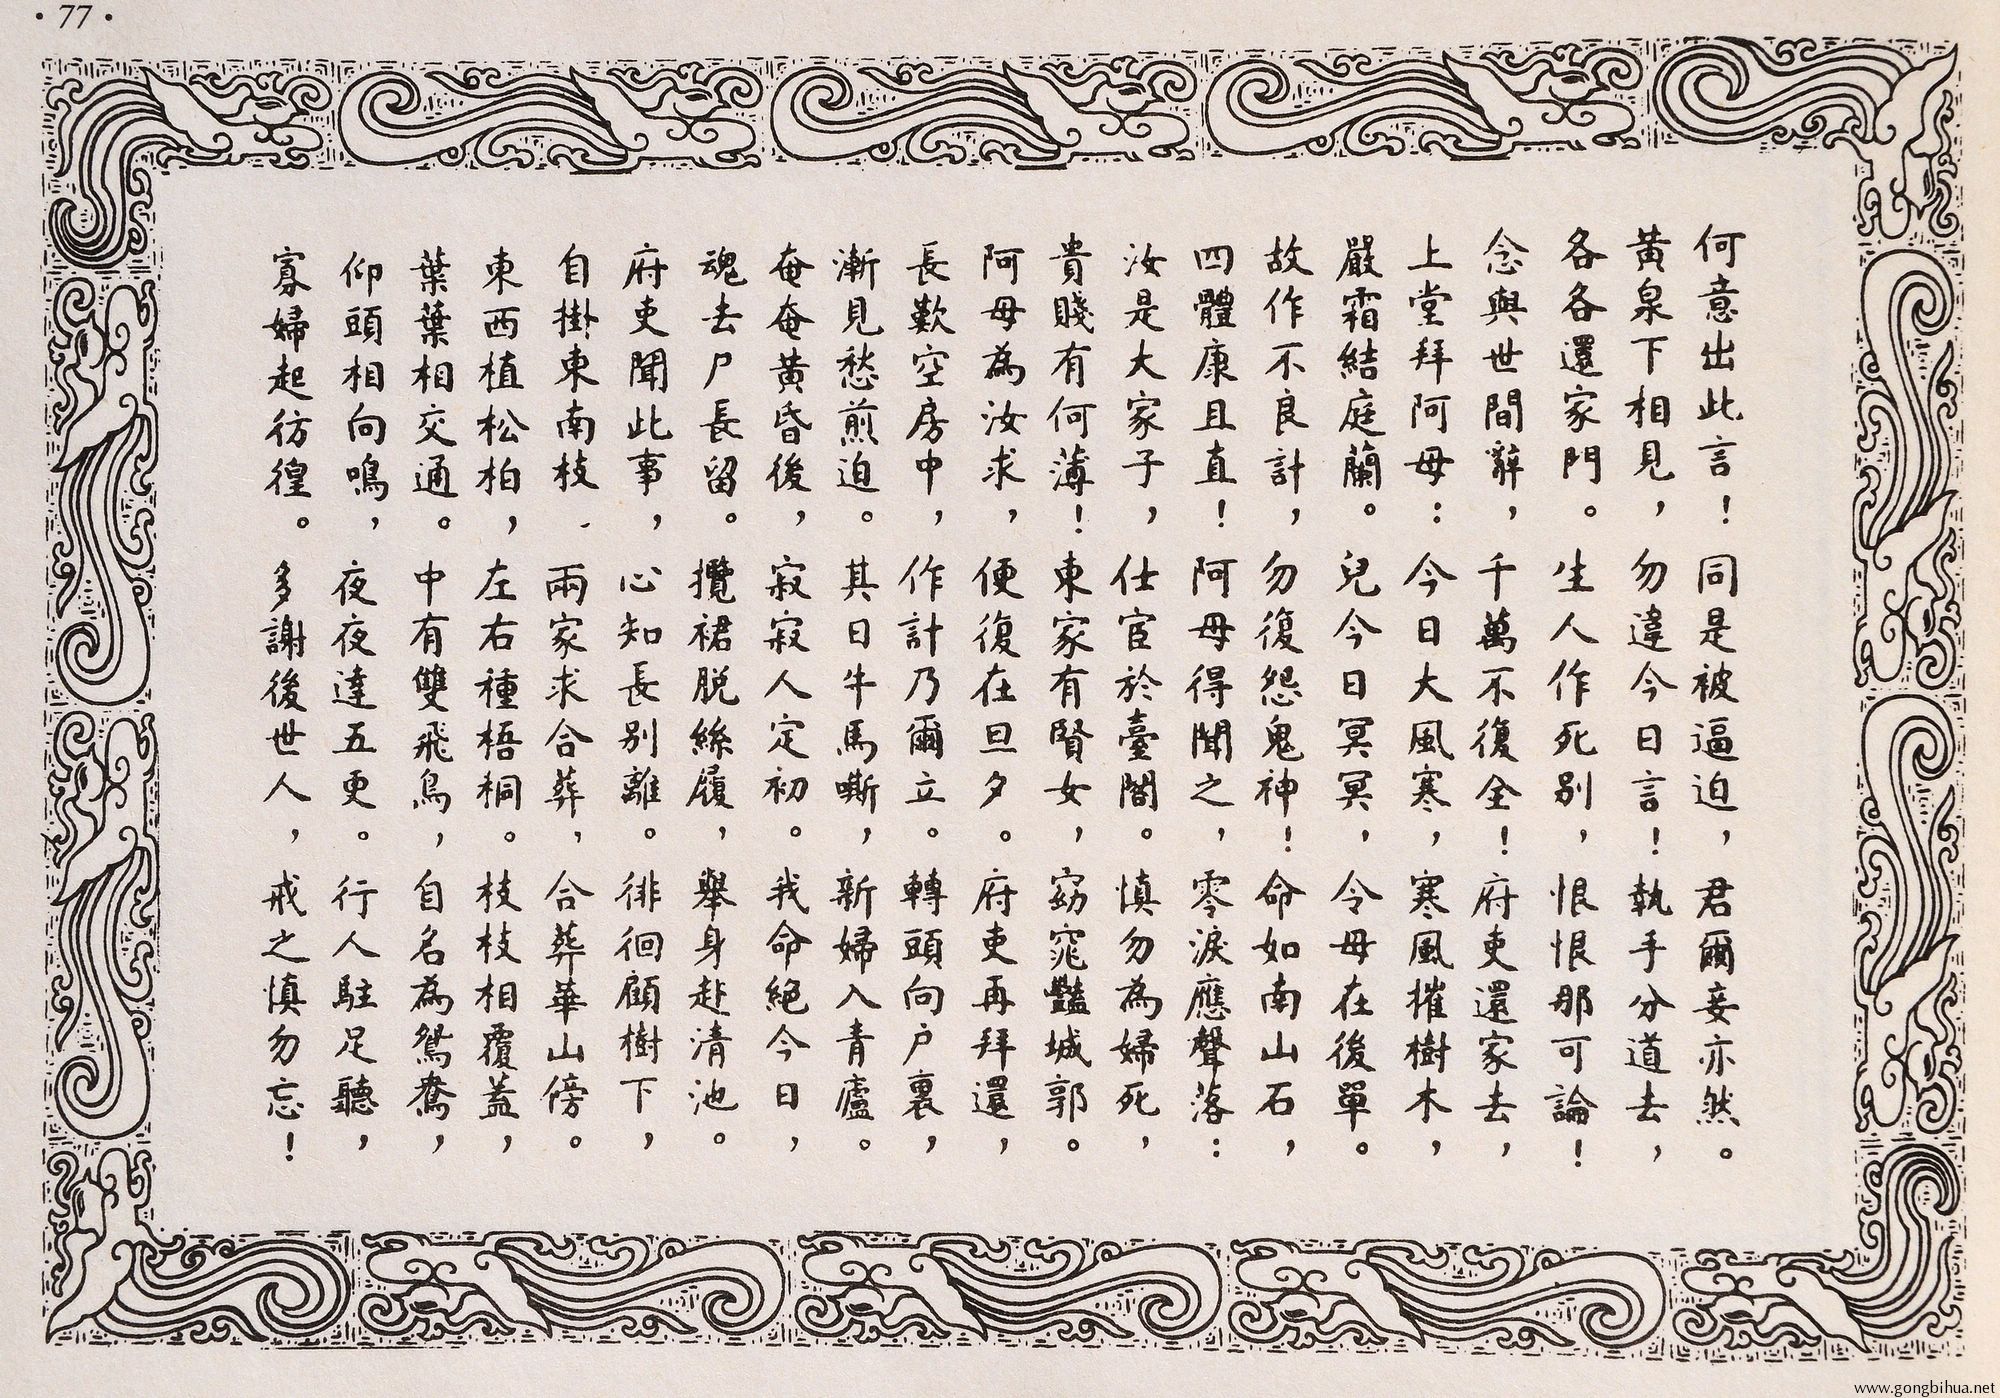 ·77·
何意出此言！同是被逼迫，君爾妾亦然。
黃泉下相見，勿違今日言！執手分道去，
各各還家門。生人作死別，恨恨那可論！
念與世間辭，千萬不復全！府吏還家去，
上堂拜阿母：今日大風寒，寒風摧樹木，
嚴霜結庭蘭。兒今日冥冥，令母在後單。
故作不良計，勿復怨鬼神！命如南山石，
四體康且直！阿母得聞之，零淚應聲落：
汝是大家子，仕宦於臺閣。慎勿為婦死，
貴賤有何薄！東家有賢女，窈窕豔城郭。
阿母為汝求，便復在旦夕。府吏再拜還，
長歎空房中，作計乃爾立。轉頭向户裏，
漸見愁煎迫。其日牛馬嘶，新婦入青廬。
奄奄黃昏後，寂寂人定初。我命絕今日，
魂去尸長留。攬裙脫絲履，舉身赴清池。
府吏聞此事，心知長別離。徘徊顧樹下，
自掛東南枝、兩家求合葬，合葬華山傍。
東西植松柏，左右種梧桐。枝枝相覆蓋，
葉葉相交通。中有雙飛鳥，自名為鴛鴦，
仰頭相向鳴，夜夜達五更。行人駐足聽，
寡婦起彷徨。多謝後世人，戒之慎勿忘！
www.gongbihua.net